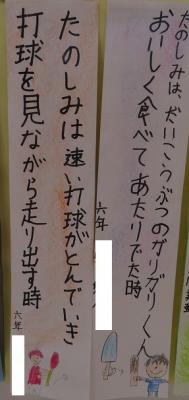 たのしみは、だいこうぶつのガリガリくん
おいしく食べてあたりでた時
六年
たのしみは速い打球がとんでいき
打球を見ながら走り出す時
六年